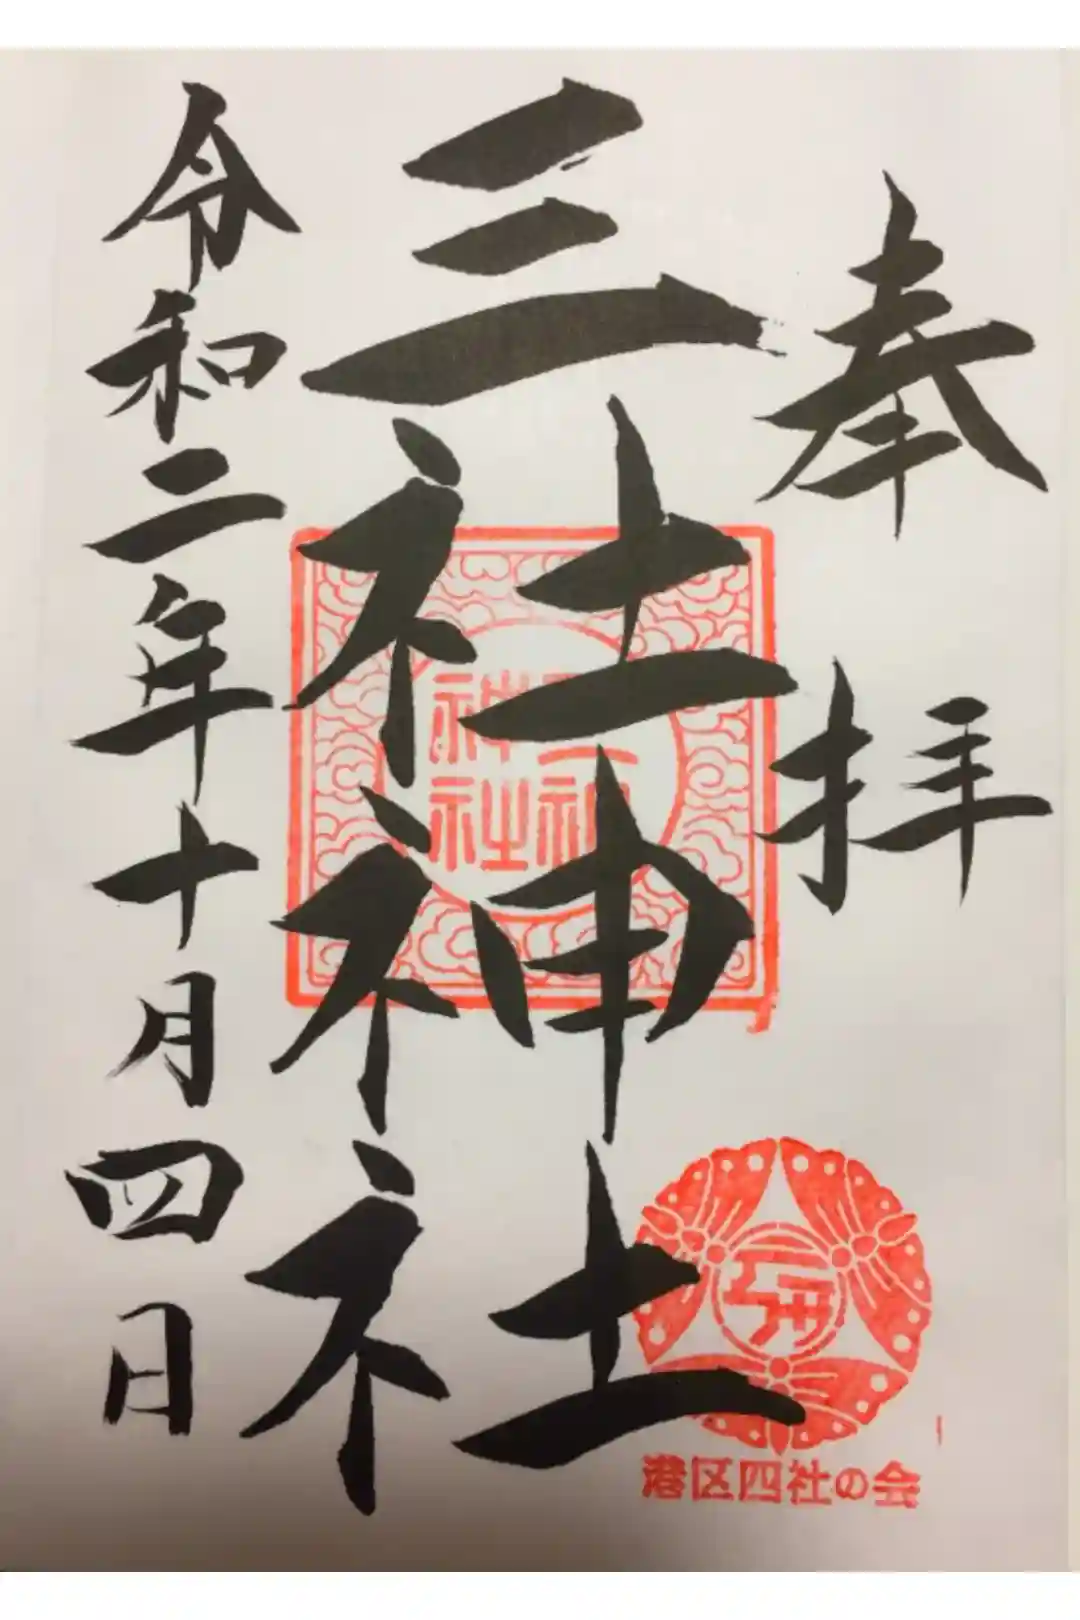 奉拝
三社神社
令和二年十月四日
港区四社の会